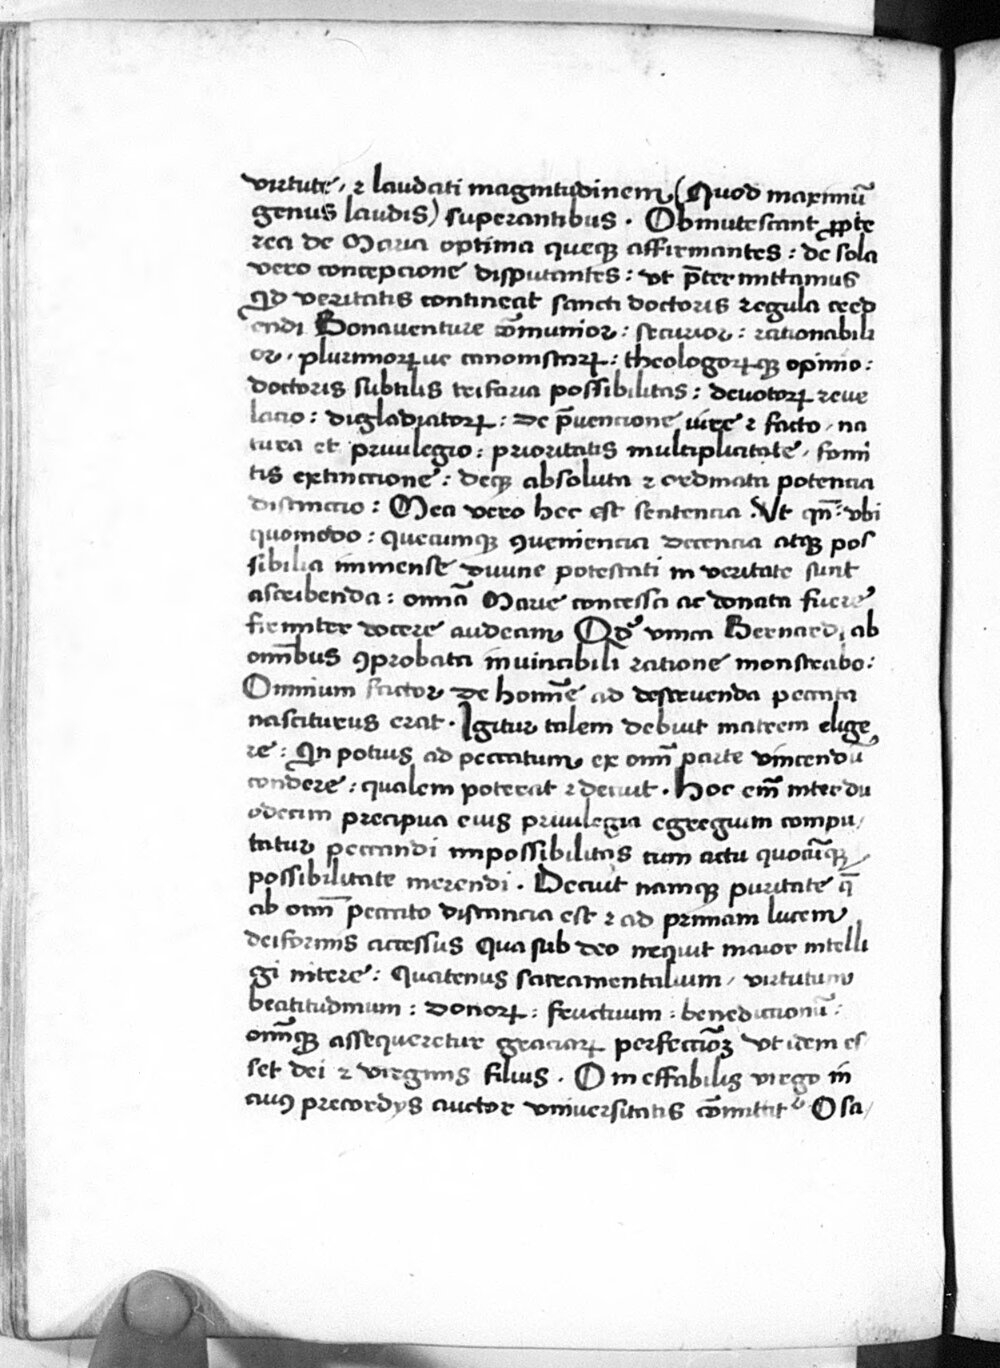 virtute, ⁊ laudati magnitudinem (Quod maximū
genus laudis) superantibus. Obmutescant ꝓpte
rea de Maria optima queqꝫ affirmantes: de sola
vero concepcione disputantes: vt p̄termittamus
qd veritatis contineat sancti doctoris regula cred
endi Bonaventure cōmunior: securior: rationabili
or, plurimorꝝ ve canonistarꝝ: theologorꝝqꝫ opinio:
doctoris subtilis trifaria possibilitas: devotorꝝ reve
lacio: digladiatorꝝ: De p̄vencione iure ⁊ facto, na
tura et privilegio: prioritatis multiplicitate, fomi
tis extinccione: deqꝫ absoluta ⁊ ordinata potencia
distinctio: Mea vero hec est sentencia. Vt qn̄: vbi
quomodo: quecumqꝫ ꝯveniencia decencia atqꝫ pos
sibilia immense divine potestati in veritate sunt
ascribenda: omīa Marie concessa ac donata fuere
firmiter docere audeam Qd vnica Bernardi ab
omībus ꝯprobata invincabili ratione monstrabo:
Omnium factor de homīe ad destruenda peccata
nasciturus erat. Igitur talem debuit matrem elige
re: Qn potius ad peccatum ex omī parte vincendū
condere: qualem poterat ⁊ decuit. Hoc em̄ inter du
odecim precipua eius privilegia egregium compu,
tatur peccandi impossibilitas cum actu quocūqꝫ
possibilitate merendi. Decuit namqꝫ puritate q̄
ab omī peccato distancia est ⁊ ad primam lucem
deiformis accessus Qua sub deo nequit maior intelli
gi nitere: Quatenus sacramentalium, virtutum
beatitudinum: donorꝝ: fructuum: benedictionū:
omīqꝫ assequeretur graciarꝝ perfectiōꝫ vt idem es
set dei ⁊ virginis filius. O ineffabilis virgo in
cuiꝰ precordys auctor vniversitatis cōmitat͛ O sa,